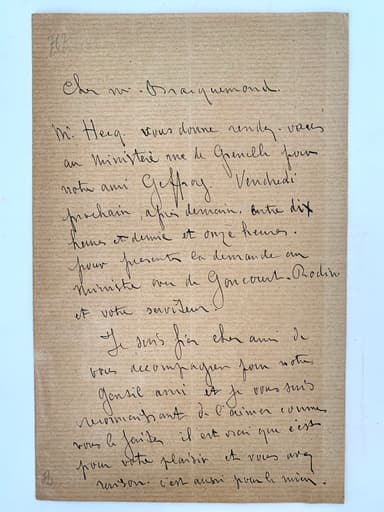 762
Cher m. Bracquemond.
Mr Hecq. vous donne rendez-vous
au Ministère rue de Grenelle pour
notre ami Geffroy. Vendredi
prochain, après demain, entre dix
heures et demie et onze heures.
pour presenter la demande au
ministre avec de Goncourt-Rodin
et votre serviteur.
Je suis fier cher ami de
vous accompagner pour notre
gentil ami et je vous suis
reconnaissant de l'aimer comme
vous le faites il est vrai que c'est
pour votre plaisir et vous avez
raison. c'est aussi pour le mien.